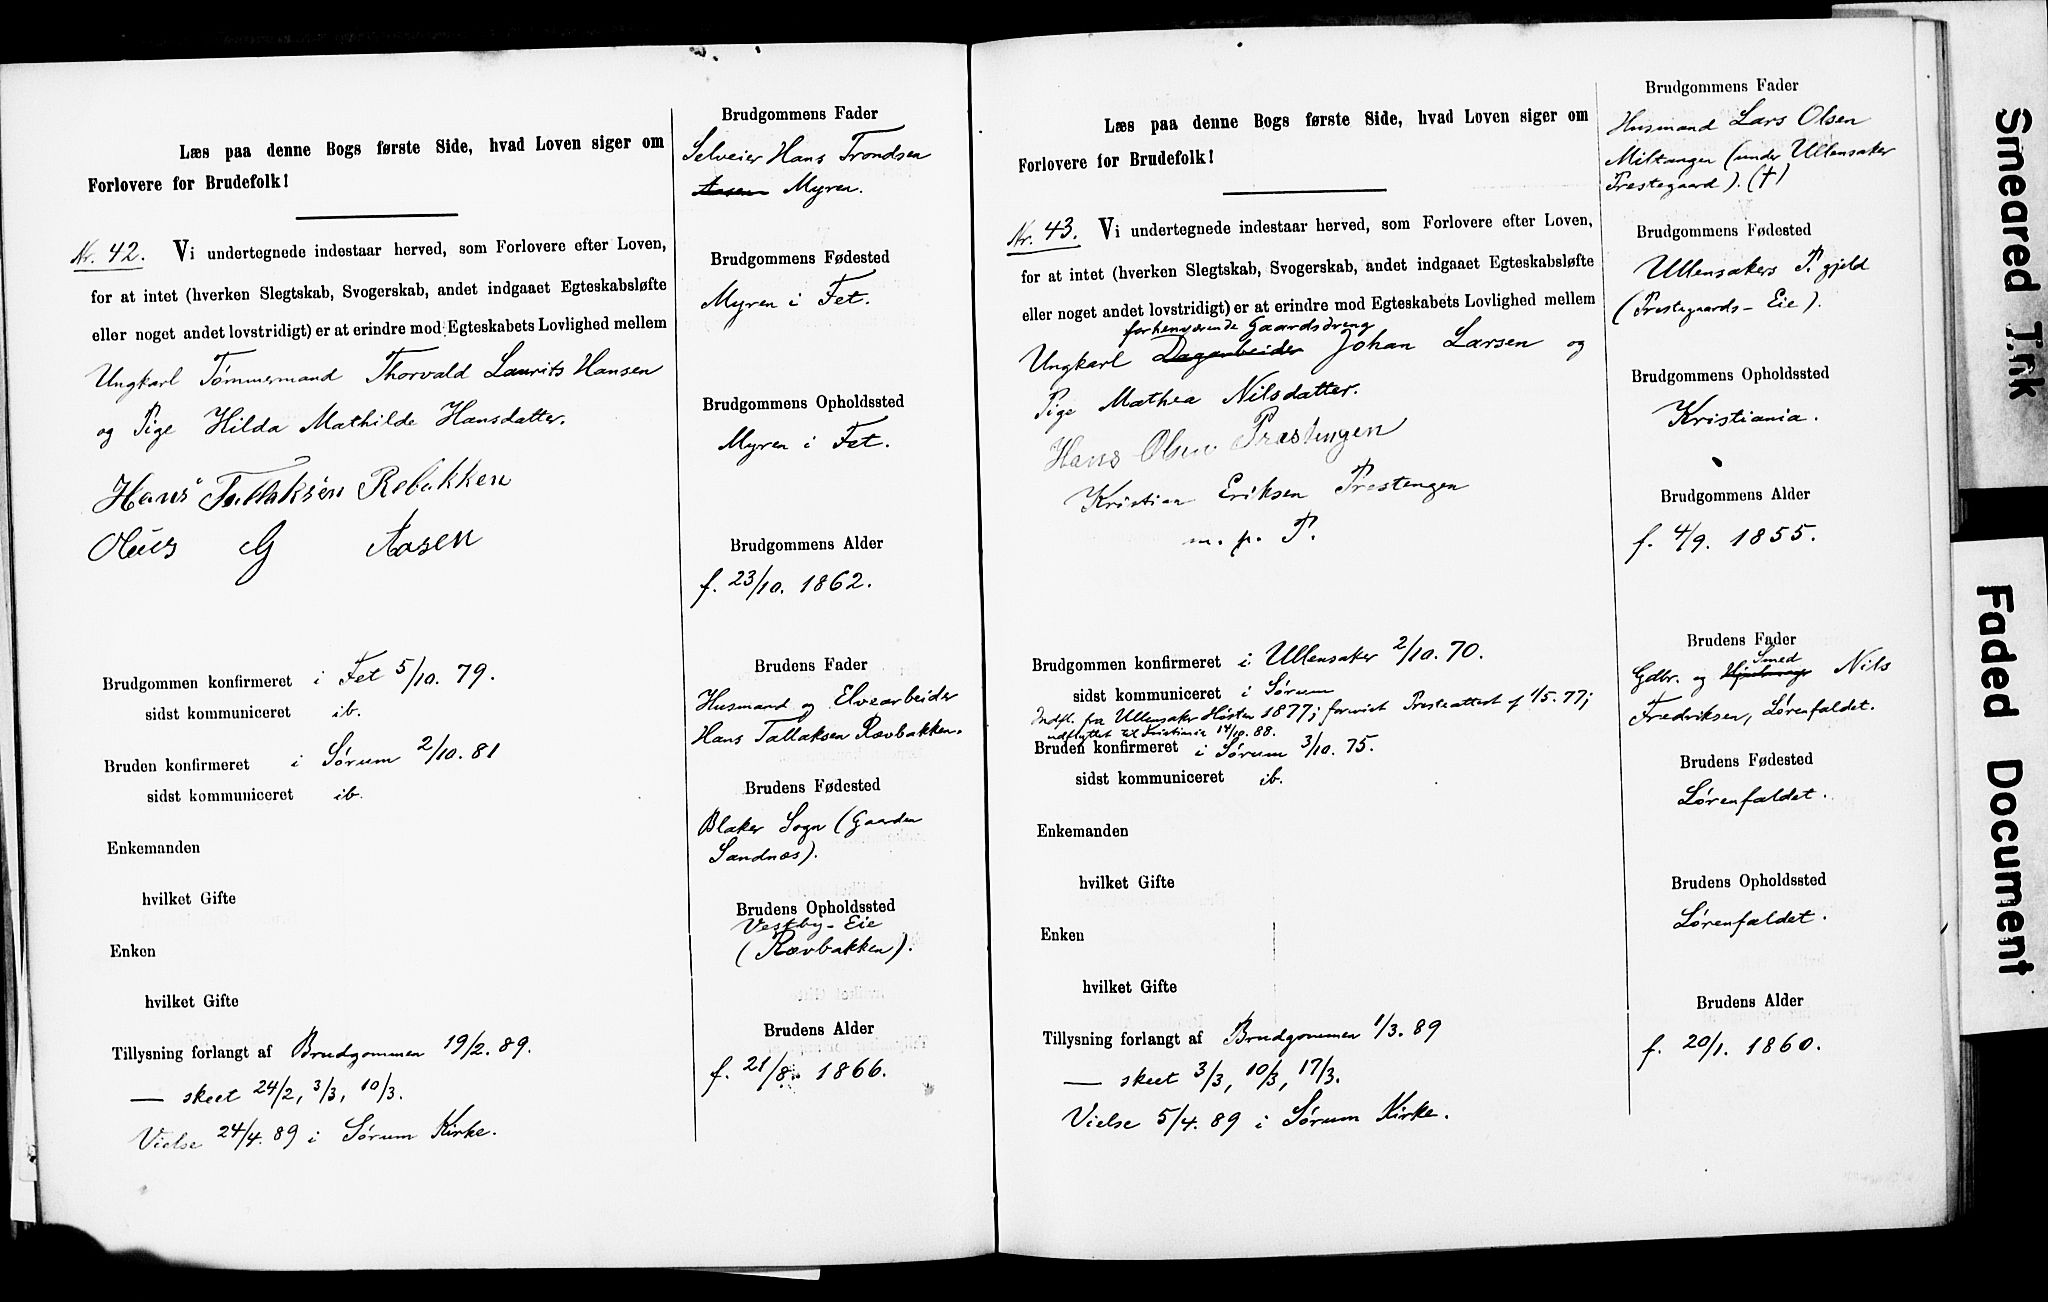 Læs paa denne Bogs første Side, hvad Loven siger om
Forlovere for Brudefolk!
Nr. 42. Vi undertegnede indestaar herved, som Forlovere efter Loven,
for at intet (hverken Slegtskab, Svogerskab, andet indgaaet Egteskabsløfte
eller noget andet lovstridigt) er at erindre mod Egteskabets Lovlighed mellem
Ungkarl Tømmermand Thorvald Laurits Hansen
og Pige Hilda Mathilde Hansdatter.
Hans Tallaksen Rebakken
Olius G Aasen
Brudgommen konfirmeret i Fet 5/10. 79.
sidst kommuniceret ib.
Bruden konfirmeret i Sørum 2/10. 81
sidst kommuniceret ib.
Enkemanden
hvilket Gifte
Enken
hvilket Gifte
Tillysning forlangt af Brudgommen 19/2. 89.
— skeet 24/2, 3/3, 10/3.
Vielse 24/4. 89 i Sørum Kirke.
Brudgommens Fader
Selveier Hans Trondsen
Aasen Myren.
Brudgommens Fødested
Myren i Fet.
Brudgommens Opholdssted
Myren i Fet.
Brudgommens Alder
f. 23/10. 1862.
Brudens Fader
Husmand og Elvearbeider
Hans Tallaksen Rævbakken.
Brudens Fødested
Blaker Sogn (Gaarden
Sandnæs).
Brudens Opholdssted
Vestby-Eie
(Rævbakken).
Brudens Alder
f. 21/8. 1866.
Læs paa denne Bogs første Side, hvad Loven siger om
Forlovere for Brudefolk!
Nr. 43. Vi undertegnede indestaar herved, som Forlovere efter Loven,
for at intet (hverken Slegtskab, Svogerskab, andet indgaaet Egteskabsløfte
eller noget andet lovstridigt) er at erindre mod Egteskabets Lovlighed mellem
forhenværende Gaardsdreng
Ungkarl Dagarbeider Johan Larsen og
Pige Mathea Nilsdatter.
Hans Olsen Præstengen
Kristian Eriksen Prestengen
m. p. P.
Brudgommen konfirmeret i Ullensaker 2/10. 70.
sidst kommuniceret i Sørum
Indfl. fra Ullensaker Høsten 1877; forevist Presteattest af 1/5. 77;
udflyttet til Kristiania 14/10. 88.
Bruden konfirmeret i Sørum 3/10. 75.
sidst kommuniceret ib.
Enkemanden
hvilket Gifte
Enken
hvilket Gifte
Tillysning forlangt af Brudgommen 1/3. 89
— skeet 3/3, 10/3, 17/3.
Vielse 5/4. 89 i Sørum Kirke.
Brudgommens Fader
Husmand Lars Olsen
Miltangen (under Ullensaker
Prestegaard). (†)
Brudgommens Fødested
Ullensakers P.gjeld
(Prestegaards-Eie).
Brudgommens Opholdssted
Kristiania.
Brudgommens Alder
f. 4/9. 1855.
Brudens Fader
Smed
Gdbr. og Nils
Fredriksen, Lørenfaldet.
Brudens Fødested
Lørenfaldet.
Brudens Opholdssted
Lørenfaldet.
Brudens Alder
f. 20/1. 1860.
Smeared Ink
Faded Document